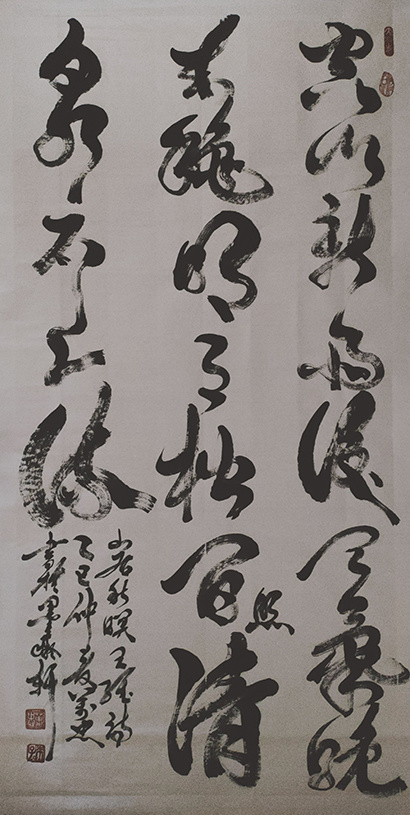 空山新雨後天氣晚
来秋明月松間照清
泉石上流
山居秋暝王維詩
乙巳仲夏
書於墨軒